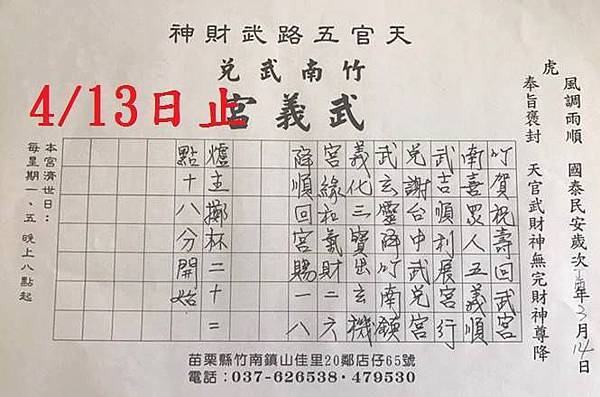 天官五路武財神
竹南武兌
武義宮
4/13日止
風調雨順 國泰民安歲次 年3月14日
虎
奉旨褒封 天官武財神無完財神尊降
竹賀祝壽回武宮
南喜眾人五義順
武吉順利展宮行
兌謝台中武兌宮
武玄靈降竹南鎮
義化三寶出玄機
宮緣和氣財二六
降順回宮賜一八
爐主擲杯二十二
點十八分開始
本宮濟世日：
每星期一、五 晚上八點起
苗栗縣竹南鎮山佳里20鄰店仔65號
電話：037-626538·479530